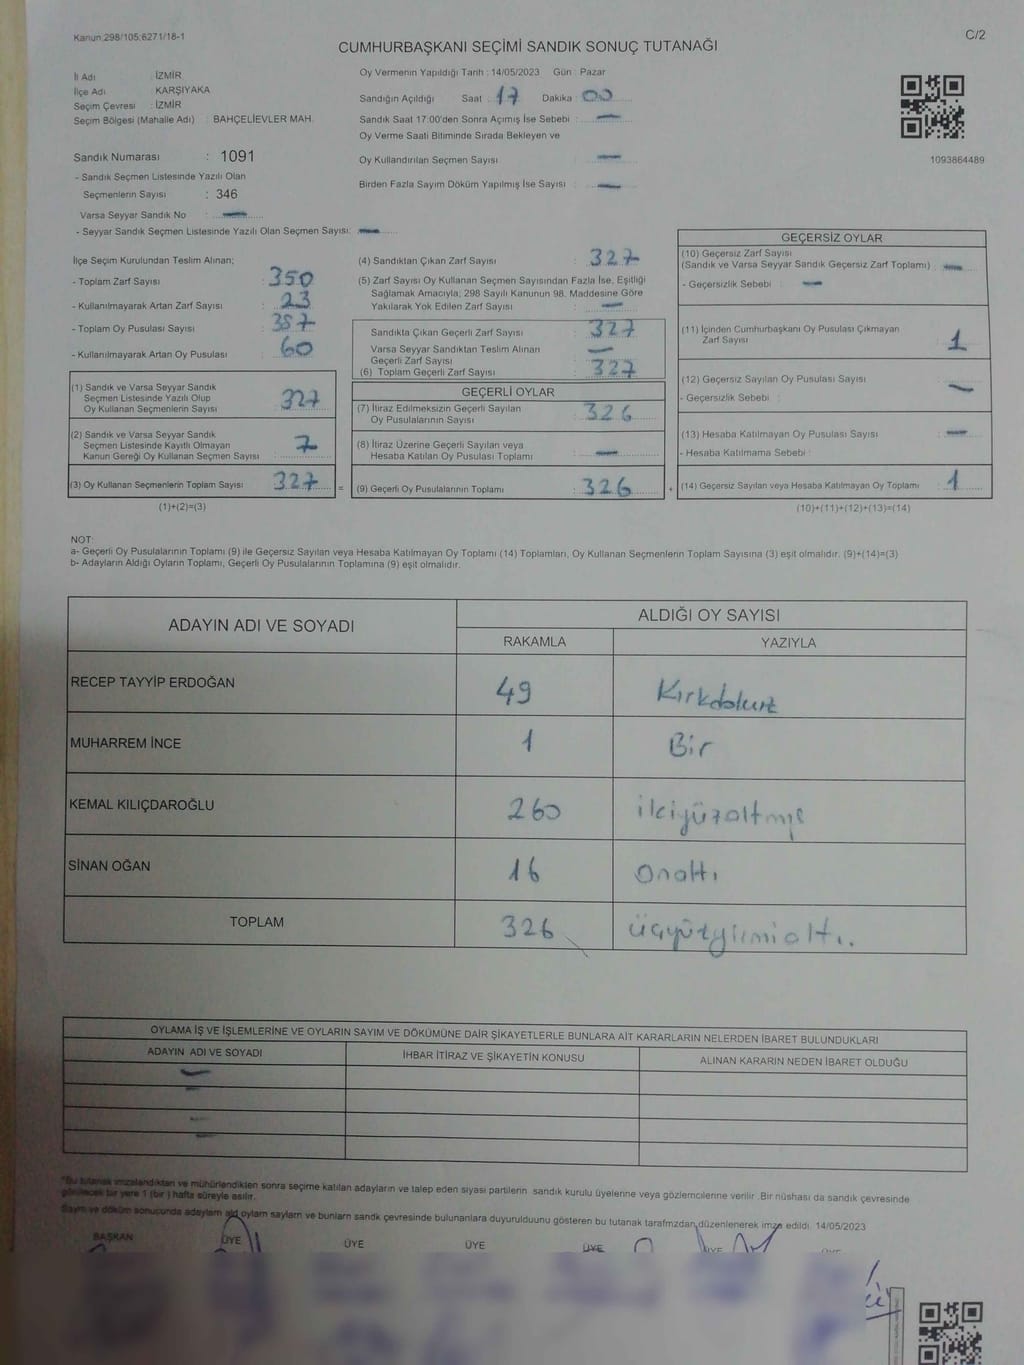 Kanun:298/105;6271/18-1
C/2
CUMHURBAŞKANI SEÇİMİ SANDIK SONUÇ TUTANAĞI
İl Adı : İZMİR
İlçe Adı : KARŞIYAKA
Seçim Çevresi : İZMİR
Seçim Bölgesi (Mahalle Adı) : BAHÇELİEVLER MAH.
Sandık Numarası : 1091
- Sandık Seçmen Listesinde Yazılı Olan
Seçmenlerin Sayısı : 346
Varsa Seyyar Sandık No : —
- Seyyar Sandık Seçmen Listesinde Yazılı Olan Seçmen Sayısı: —
Oy Vermenin Yapıldığı Tarih : 14/05/2023 Gün : Pazar
Sandığın Açıldığı Saat : 17 Dakika : 00
Sandık Saat 17:00'den Sonra Açımış İse Sebebi : —
Oy Verme Saati Bitiminde Sırada Bekleyen ve
Oy Kullandırılan Seçmen Sayısı : —
Birden Fazla Sayım Döküm Yapılmış İse Sayısı : —
1093864489
İlçe Seçim Kurulundan Teslim Alınan;
- Toplam Zarf Sayısı : 350
- Kullanılmayarak Artan Zarf Sayısı : 23
- Toplam Oy Pusulası Sayısı : 387
- Kullanılmayarak Artan Oy Pusulası : 60
(1) Sandık ve Varsa Seyyar Sandık
Seçmen Listesinde Yazılı Olup
Oy Kullanan Seçmenlerin Sayısı : 327
(2) Sandık ve Varsa Seyyar Sandık
Seçmen Listesinde Kayıtlı Olmayan
Kanun Gereği Oy Kullanan Seçmen Sayısı :
(3) Oy Kullanan Seçmenlerin Toplam Sayısı : 327
(1)+(2)=(3)
(4) Sandıktan Çıkan Zarf Sayısı : 327
(5) Zarf Sayısı Oy Kullanan Seçmen Sayısından Fazla İse, Eşitliği
Sağlamak Amacıyla; 298 Sayılı Kanunun 98. Maddesine Göre
Yakılarak Yok Edilen Zarf Sayısı : —
Sandıkta Çıkan Geçerli Zarf Sayısı : 327
Varsa Seyyar Sandıktan Teslim Alınan
Geçerli Zarf Sayısı : —
(6) Toplam Geçerli Zarf Sayısı : 327
GEÇERLİ OYLAR
(7) İtiraz Edilmeksizin Geçerli Sayılan
Oy Pusulalarının Sayısı : 326
(8) İtiraz Üzerine Geçerli Sayılan veya
Hesaba Katılan Oy Pusulası Toplamı : —
= (9) Geçerli Oy Pusulalarının Toplamı : 326 +
GEÇERSİZ OYLAR
(10) Geçersiz Zarf Sayısı
(Sandık ve Varsa Seyyar Sandık Geçersiz Zarf Toplamı) : —
- Geçersizlik Sebebi : —
(11) İçinden Cumhurbaşkanı Oy Pusulası Çıkmayan
Zarf Sayısı : 1
(12) Geçersiz Sayılan Oy Pusulası Sayısı : —
- Geçersizlik Sebebi :
(13) Hesaba Katılmayan Oy Pusulası Sayısı : —
- Hesaba Katılmama Sebebi :
(14) Geçersiz Sayılan veya Hesaba Katılmayan Oy Toplamı : 1
(10)+(11)+(12)+(13)=(14)
NOT:
a- Geçerli Oy Pusulalarının Toplamı (9) ile Geçersiz Sayılan veya Hesaba Katılmayan Oy Toplamı (14) Toplamları, Oy Kullanan Seçmenlerin Toplam Sayısına (3) eşit olmalıdır. (9)+(14)=(3)
b- Adayların Aldığı Oyların Toplamı, Geçerli Oy Pusulalarının Toplamına (9) eşit olmalıdır.
ADAYIN ADI VE SOYADI
ALDIĞI OY SAYISI
RAKAMLA YAZIYLA
RECEP TAYYİP ERDOĞAN 49 Kırkdokuz
MUHARREM İNCE 1 Bir
KEMAL KILIÇDAROĞLU 260 ikiyüzaltmış
SİNAN OĞAN 16 onaltı
TOPLAM 326 üçyüzyirmialtı.
OYLAMA İŞ VE İŞLEMLERİNE VE OYLARIN SAYIM VE DÖKÜMÜNE DAİR ŞİKAYETLERLE BUNLARA AİT KARARLARIN NELERDEN İBARET BULUNDUKLARI
ADAYIN ADI VE SOYADI İHBAR İTİRAZ VE ŞİKAYETİN KONUSU ALINAN KARARIN NEDEN İBARET OLDUĞU
*Bu tutanak imzalandıktan ve mühürlendikten sonra seçime katılan adayların ve talep eden siyasi partilerin sandık kurulu üyelerine veya gözlemcilerine verilir. Bir nüshası da sandık çevresinde
görülecek bir yere 1 (bir ) hafta süreyle asılır.
Sayım ve döküm sonucunda adayların aldığı oyların sayıları ve bunların sandık çevresinde bulunanlara duyurulduğunu gösteren bu tutanak tarafımızdan düzenlenerek imza edildi. 14/05/2023
BAŞKAN ÜYE ÜYE ÜYE ÜYE ÜYE